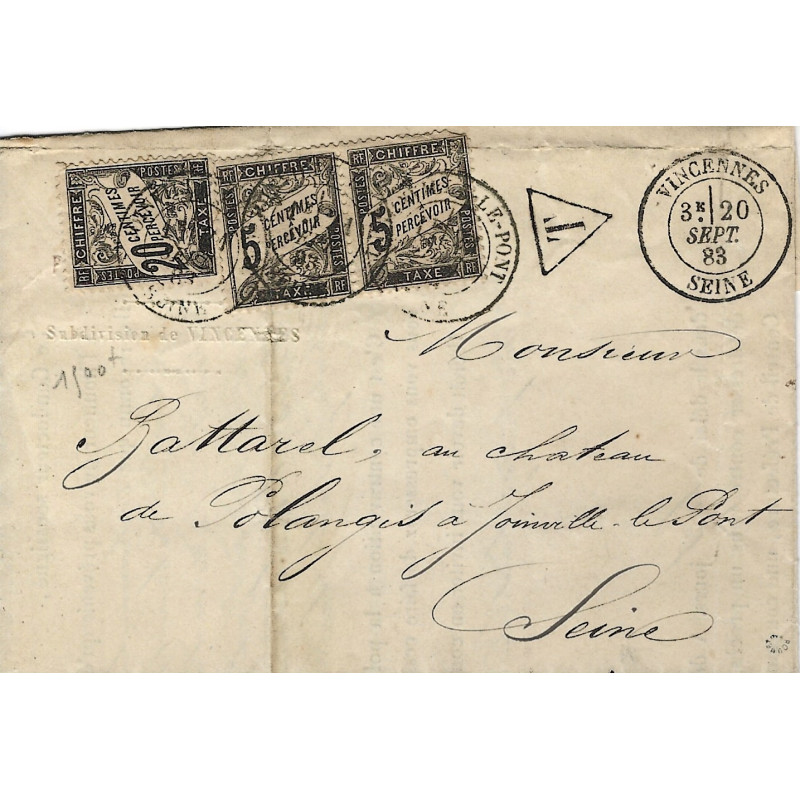 CHIFFRE
POSTES
20 CENTIMES
PERCEVOIR
TAXE
RF
POSTES
RF
CHIFFRE
POSTES
5 CENTIMES
PERCEVOIR
POSTES
TAXE
RF
RF
CHIFFRE
POSTES
5 CENTIMES
PERCEVOIR
POSTES
TAXE
RF
LE-PONT
SEINE
T
VINCENNES
3E 20
SEPT.
83
SEINE
Subdivision de VINCENNES
1500+
Monsieur
Battarel, au chateau
de Polangis à Joinville-le-Pont
Seine